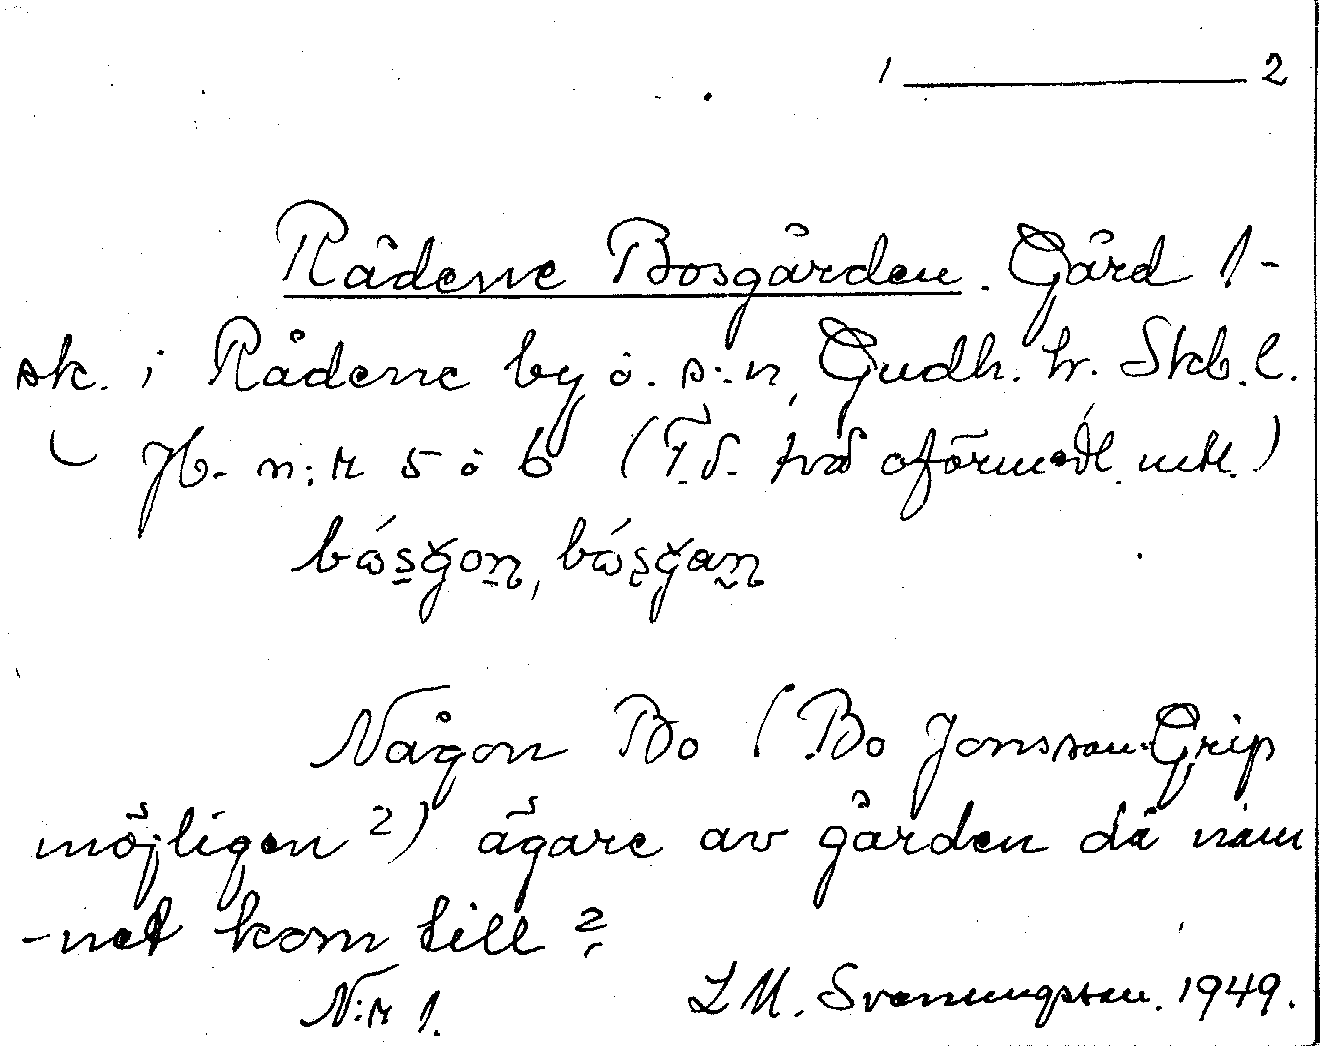 1 ——— 2
Rådene Bosgården. Gård 1-
sk. i Rådene by o. s:n, Gudh. hr. Skb. l.
Jb. n:r 5 o 6 (F.d. två oförmedl. mtl.)
bósgon, bósgan
Någon Bo (Bo Jonsson Grip
möjligen?) ägare av gården då nam
-net kom till?
N:r 1. L M. Svanungsson. 1949.